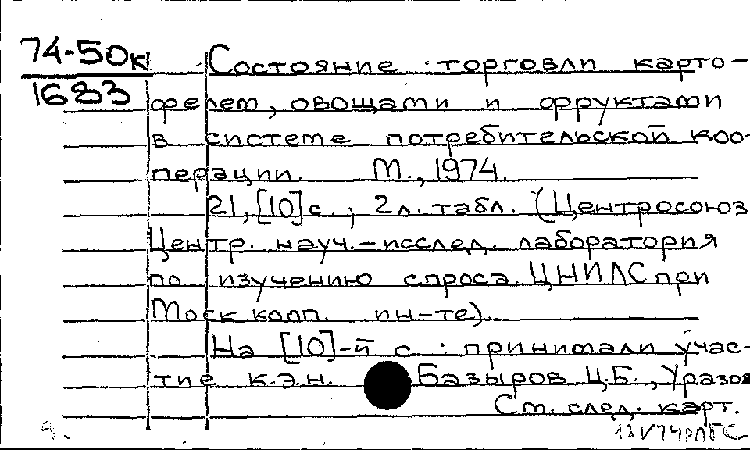 74-50к Состояние торговли карто-
1683 фелем, овощами и фруктами
в системе потребительской коо-
перации. М., 1974.
21, [10] с., 2 л. табл. (Центросоюз
Центр. науч.-исслед. лаборатория
по изучению спроса ЦНИЛС при
Моск кооп. ин-те).
На [10]-й с.: принимали учас-
тие к.э.н. Базыров Ц.Б., Уразов
См. след. карт.